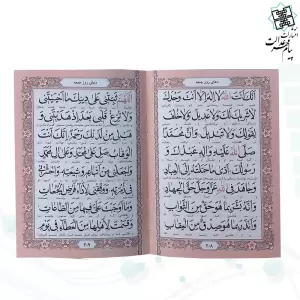 دعای روز جمعه
أَنَّكَ أَنْتَ اللهُ لا إِلهَ إِلَّا أَنْتَ وَحْدَكَ
لا شَرِيكَ لَكَ وَلا عَدِيلَ وَلا خُلْفَ
لِقَوْلِكَ وَلا تَبْدِيلَ وَأَنَّ مُحَمَّداً
صَلَّى اللهُ عَلَيْهِ وَآلِهِ عَبْدُكَ وَ
رَسُولُكَ أَدَّى ما حَمَّلْتَهُ إِلَى الْعِبادِ
وَجاهَدَ فِي اللهِ عَزَّ وَجَلَّ حَقَّ الْجِهادِ
وَأَنَّهُ بَشَّرَ بِما هُوَ حَقٌّ مِنَ الثَّوابِ
وَأَنْذَرَ بِما هُوَ صِدْقٌ مِنَ الْعِقابِ
۲۰۸
دعای روز جمعه
اللّهُمَّ ثَبِّتْنِي عَلى دِينِكَ ما أَحْيَيْتَنِي
وَلا تُزِغْ قَلْبِي بَعْدَ إِذْ هَدَيْتَنِي وَ
هَبْ لِي مِنْ لَدُنْكَ رَحْمَةً إِنَّكَ أَنْتَ
الْوَهَّابُ صَلِّ عَلى مُحَمَّدٍ وَعَلى آلِ مُحَمَّدٍ
وَاجْعَلْنِي مِنْ أَتْباعِهِ وَشِيعَتِهِ وَاحْشُرْنِي
فِي زُمْرَتِهِ وَوَفِّقْنِي لِأَداءِ فَرْضِ الْجُمُعاتِ
وَما أَوْجَبْتَ عَلَيَّ فِيها مِنَ الطَّاعاتِ
وَقَسَمْتَ لِأَهْلِها مِنَ الْعَطاءِ فِي يَوْمِ
۲۰۹